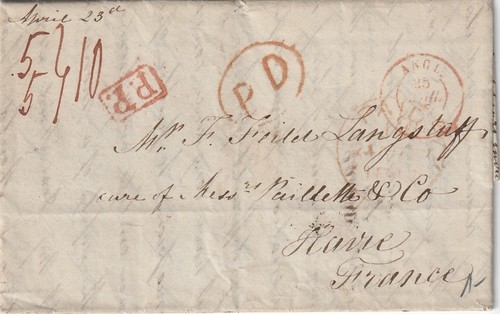 April 23d
5/10
5
P.P.
PD
ANGL.
25
Mr. F. Feild Langstuff
care of Messrs Paillette & Co
Havre
France